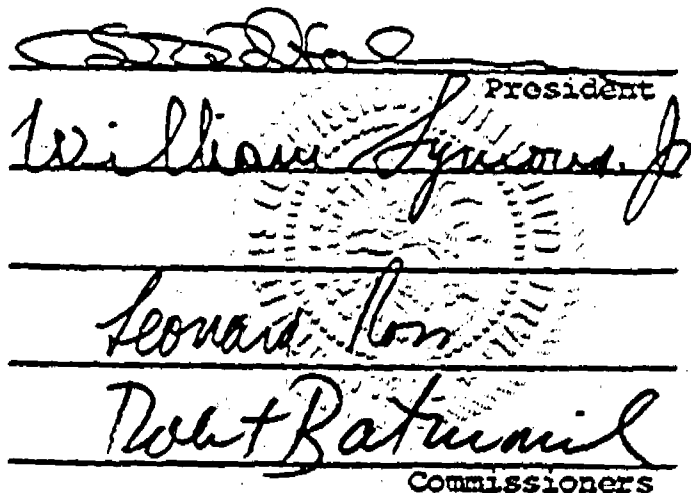 President
William Symons. Jr
Leonard Ross
Robert Batinovich
Commissioners